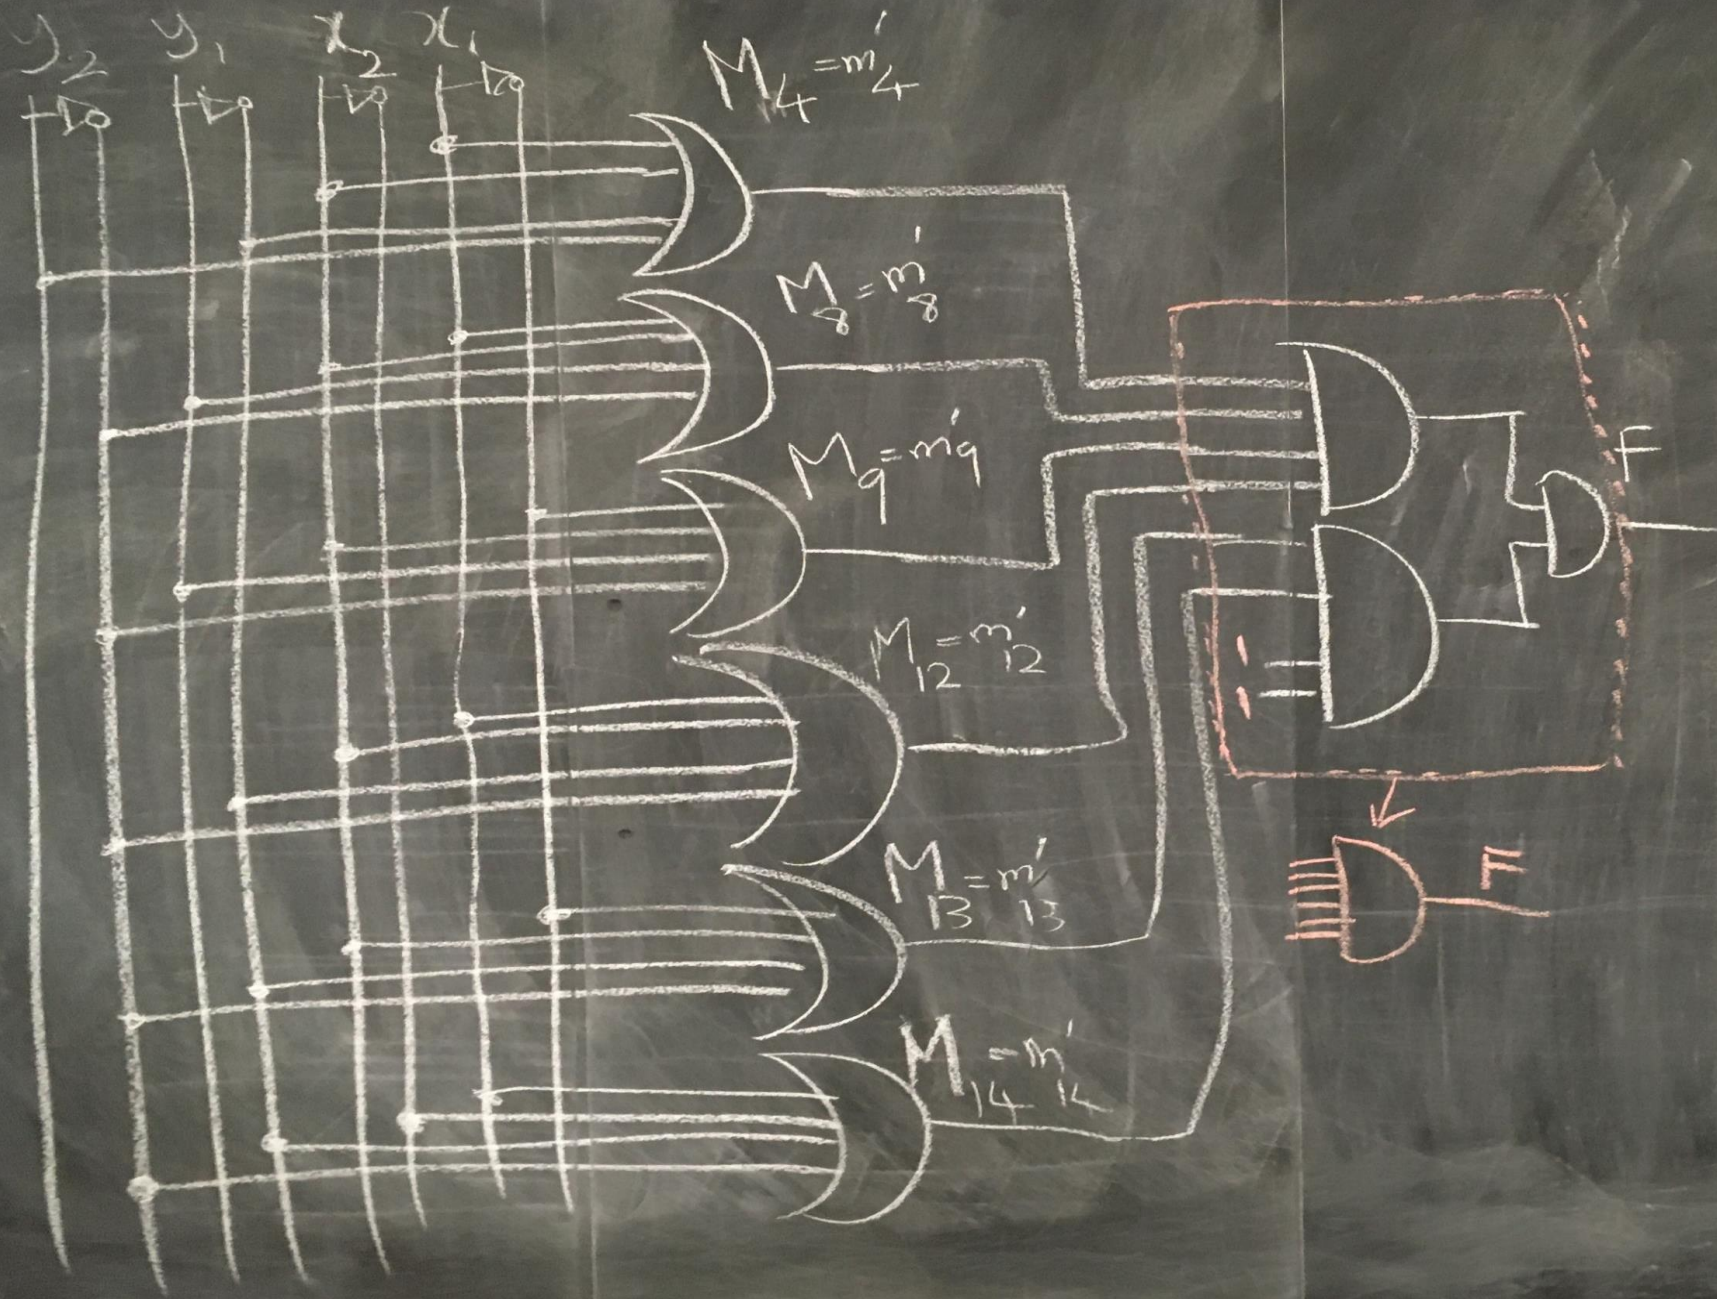 y₂ y₁ x₂ x₁
M₄ = m'₄
M₈ = m'₈
M₉ = m'₉
F
M₁₂ = m'₁₂
M₁₃ = m'₁₃
F
M₁₄ = m'₁₄